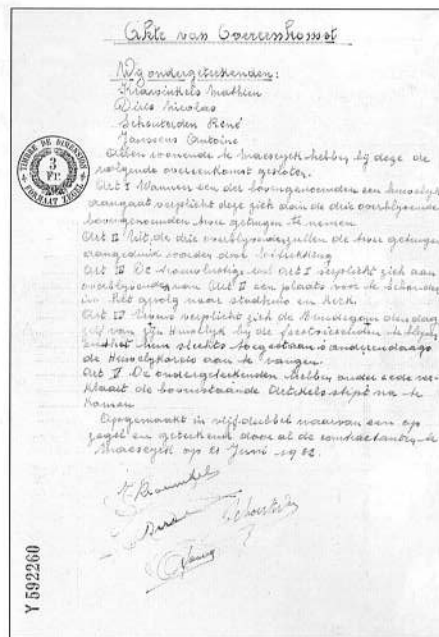 Akte van Overeenkomst
Wij ondergeteekenden:
Mathieu
Dirix Nicolas
Schouteden René
Janssens Antoine
Allen woonende te Maeseyck hebben bij deze de
volgende overeenkomst gesloten.
Art I Wanneer een der bovengenoemden een huwelijk
aangaat verplicht deze zich aan de drie overblijvende
bovengenoemden twee getuigen te nemen
Art II Uit de drie overblijvende zullen de twee getuigen
aangeduid worden door
Art III De van Art I verplicht zich aan
overblijvende van Art II een plaats voor te behouden
in het gevolg naar stadhuis en kerk.
Art IV verplicht zich de Bruidegom den dag
zelf van zijn Huwelijk bij de te blijven
en het hem slechts toegestaan 's anderendaags
de Huwelijksreis aan te vangen.
Art V De ondergeteekenden hebben onder eede ver-
klaart de bovenstaande Artikels stipt na te
komen
Opgemaakt in vijf-dubbel waarvan een op
zegel en geteekend door al de contractanten te
Maeseyck op 21 Juni 1932.
TIMBRE DE DIMENSION
3
Fr.
FORMAAT ZEGEL
Y 592260